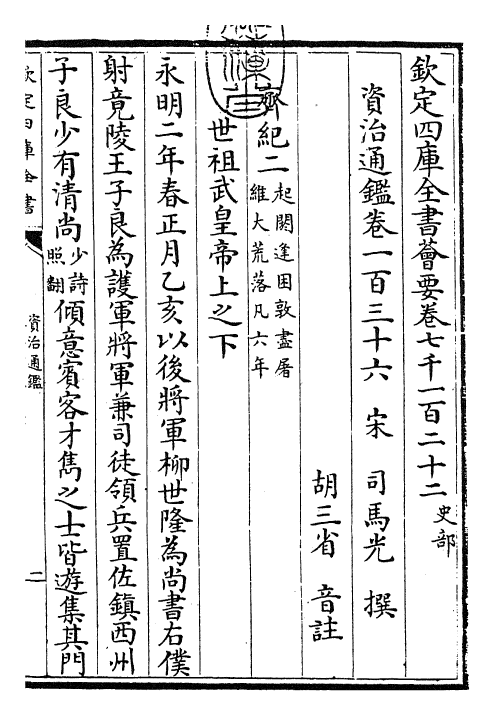 欽定四庫全書薈要卷七千一百二十二 史部
資治通鑑卷一百三十六 宋 司馬光 撰
胡三省 音註
齊紀二 起閼逢困敦盡屠
維大荒落凡六年
世祖武皇帝上之下
永明二年春正月乙亥以後將軍柳世隆為尚書右僕
射竟陵王子良為護軍將軍兼司徒領兵置佐鎮西州
子良少有清尚 少詩
照翻 傾意賓客才雋之士皆遊集其門
欽定四庫全書
資治通鑑
二